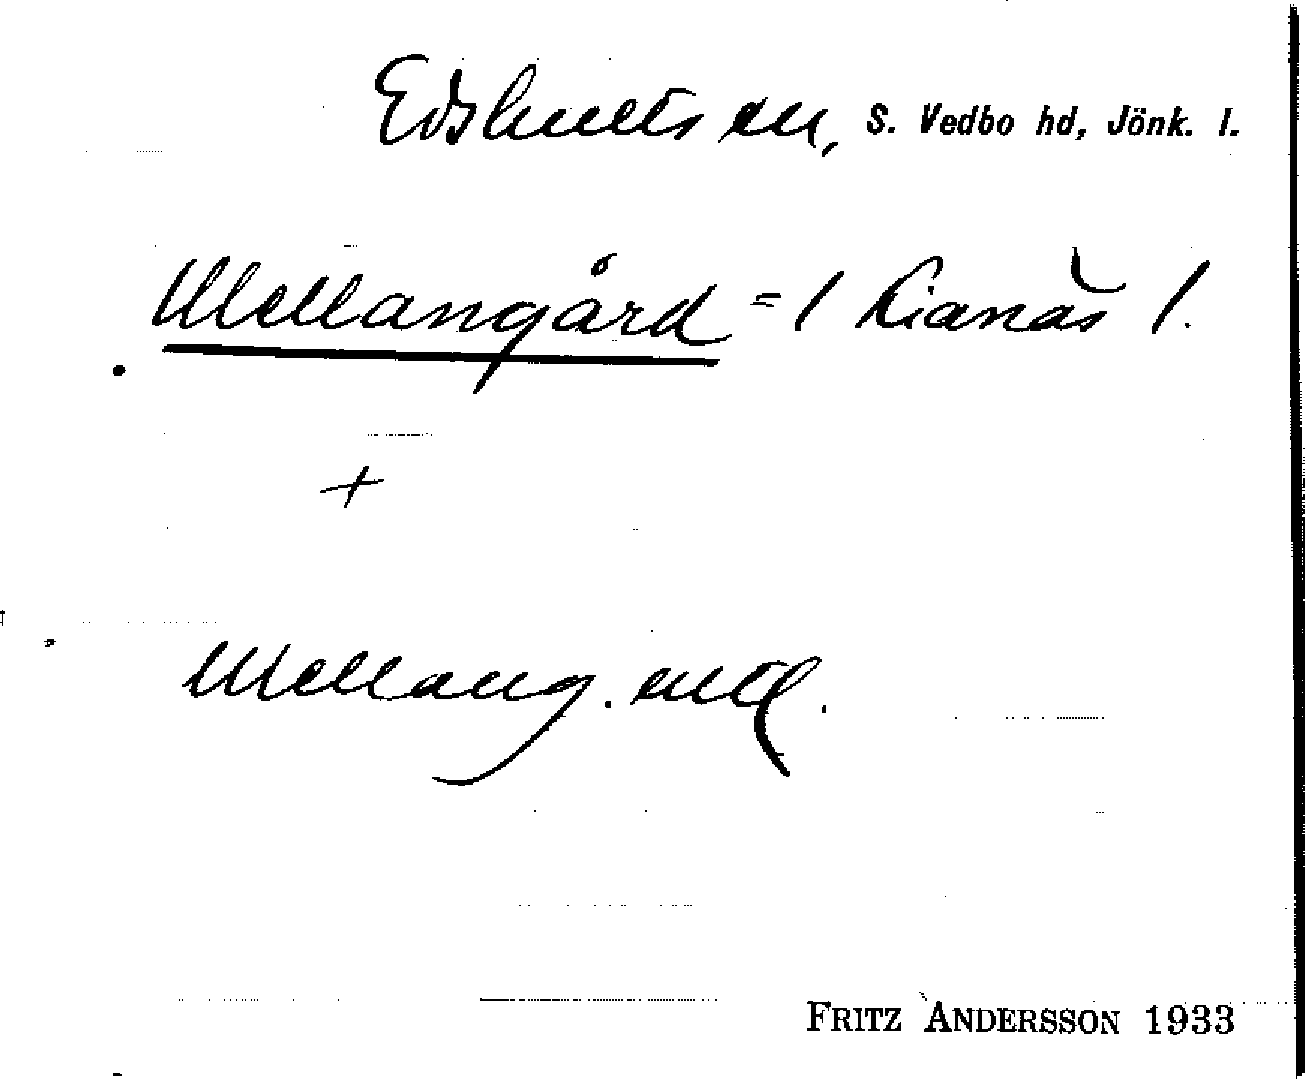 Edshults sn, S. Vedbo hd, Jönk. l.
Mellangård = / Lianäs /.
+
Mellang. enl.
FRITZ ANDERSSON 1933